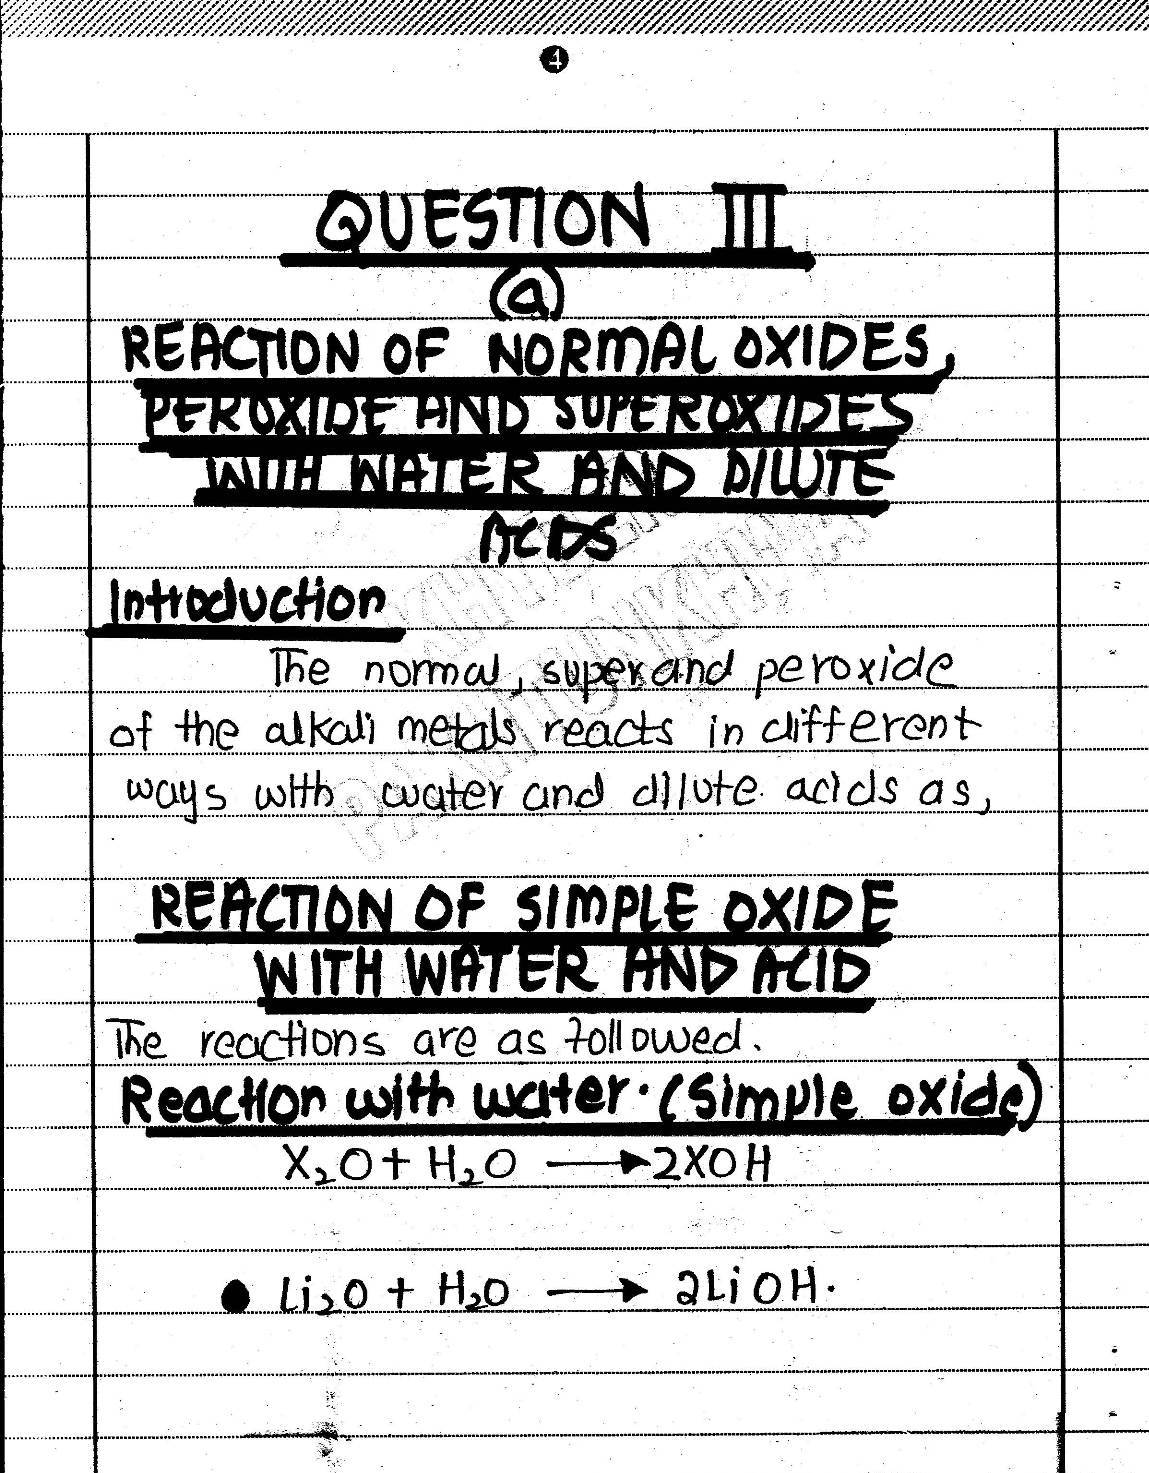 4
QUESTION III
(a)
REACTION OF NORMAL OXIDES,
PEROXIDE AND SUPEROXIDES
WITH WATER AND DILUTE
ACIDS
Introduction
The normal, super and peroxide
of the alkali metals reacts in different
ways with water and dilute acids as,
REACTION OF SIMPLE OXIDE
WITH WATER AND ACID
The reactions are as followed.
Reaction with water. (Simple oxide)
X₂O + H₂O → 2XOH
● Li₂O + H₂O → 2LiOH.